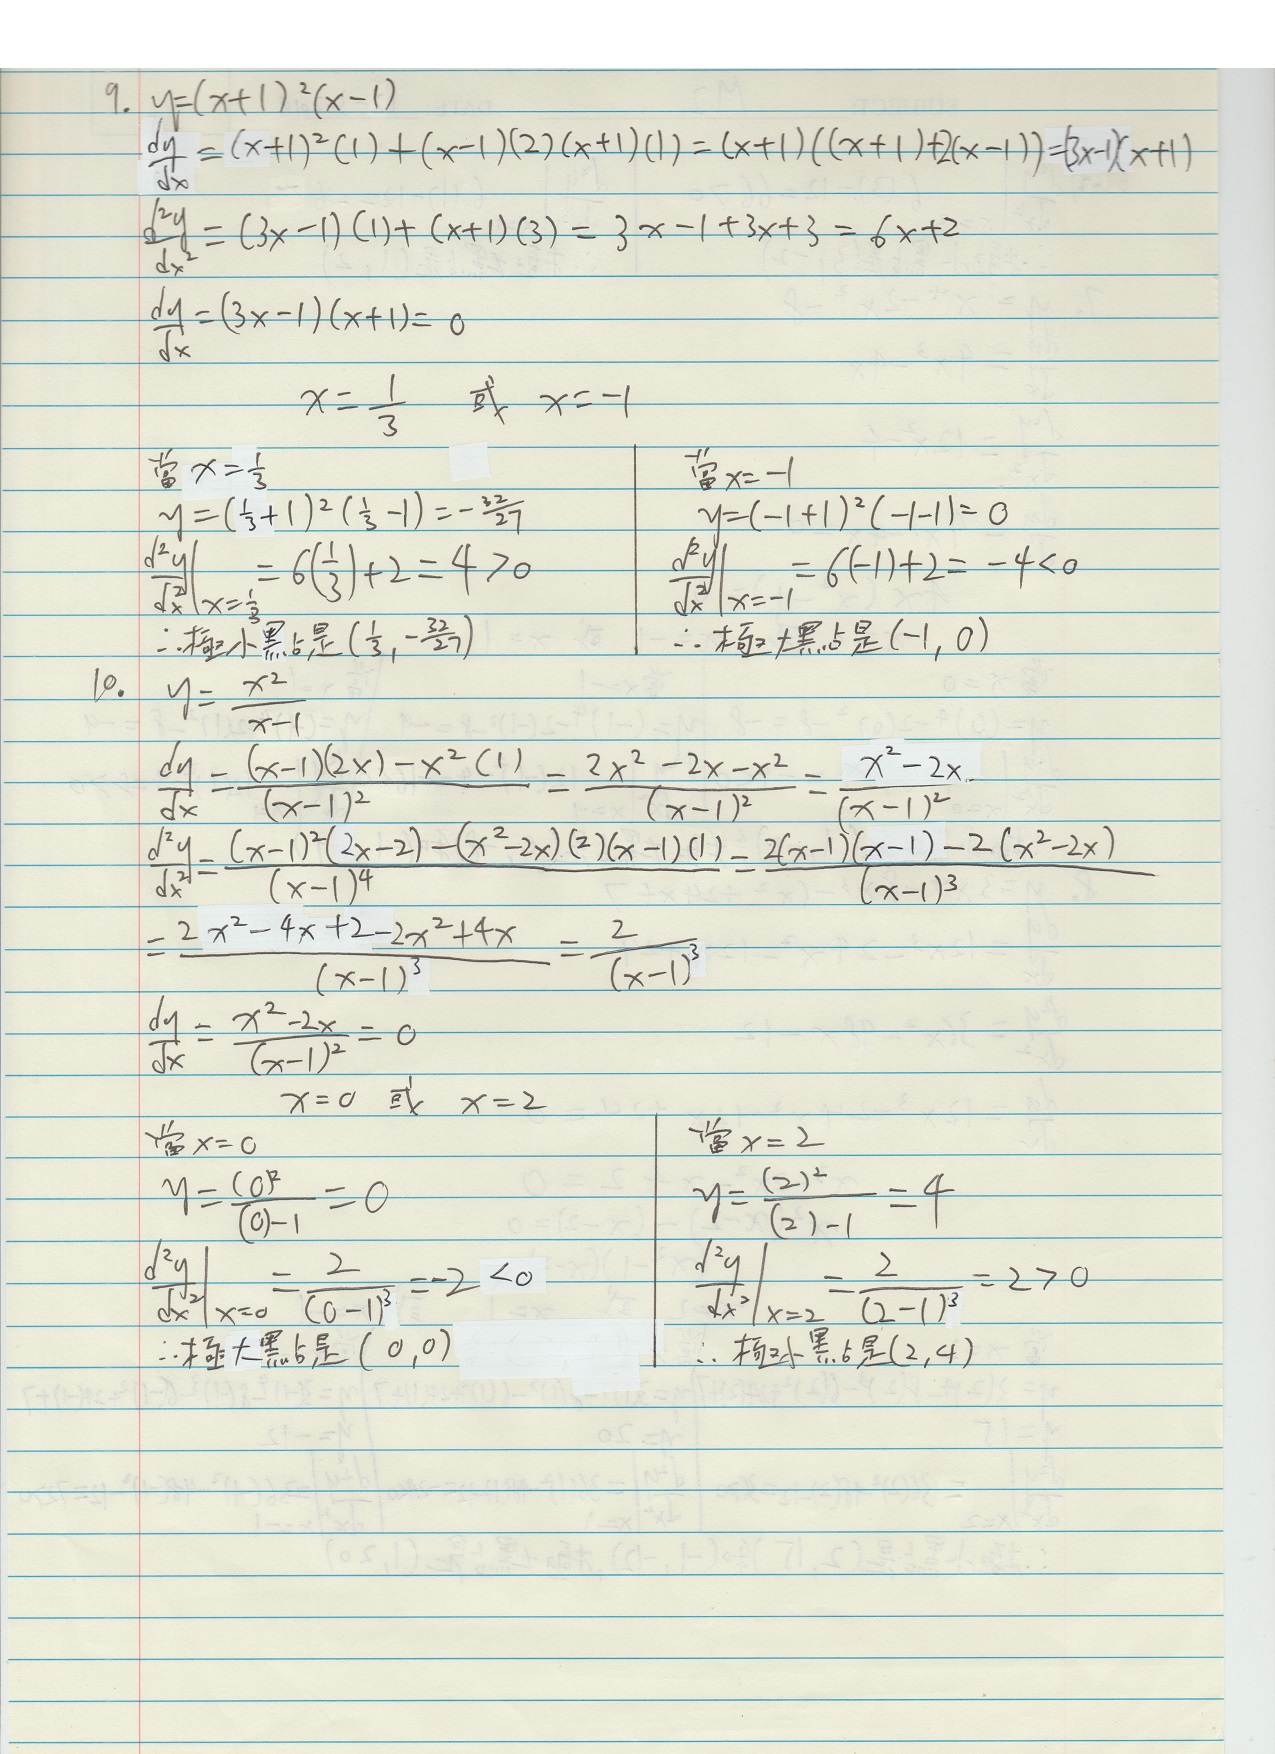 9. y=(x+1)²(x-1)
dy/dx = (x+1)²(1)+(x-1)(2)(x+1)(1) = (x+1)((x+1)+2(x-1)) = (3x-1)(x+1)
d²y/dx² = (3x-1)(1)+(x+1)(3) = 3x-1+3x+3 = 6x+2
dy/dx = (3x-1)(x+1) = 0
x = 1/3 或 x = -1
當 x = 1/3
y = (1/3+1)²(1/3-1) = -32/27
d²y/dx²|x=1/3 = 6(1/3)+2 = 4>0
∴極小點是(1/3, -32/27)
當x=-1
y=(-1+1)²(-1-1)=0
d²y/dx²|x=-1 = 6(-1)+2 = -4<0
∴極大點是(-1, 0)
10. y = x²/(x-1)
dy/dx = ((x-1)(2x)-x²(1))/(x-1)² = (2x²-2x-x²)/(x-1)² = (x²-2x)/(x-1)²
d²y/dx² = ((x-1)²(2x-2)-(x²-2x)(2)(x-1)(1))/(x-1)⁴ = (2(x-1)(x-1)-2(x²-2x))/(x-1)³
= (2x²-4x+2-2x²+4x)/(x-1)³ = 2/(x-1)³
dy/dx = (x²-2x)/(x-1)² = 0
x=0 或 x=2
當x=0
y = (0)²/((0)-1) = 0
d²y/dx²|x=0 = 2/(0-1)³ = -2 <0
∴極大點是(0,0)
當x=2
y = (2)²/((2)-1) = 4
d²y/dx²|x=2 = 2/(2-1)³ = 2>0
∴極小點是(2,4)